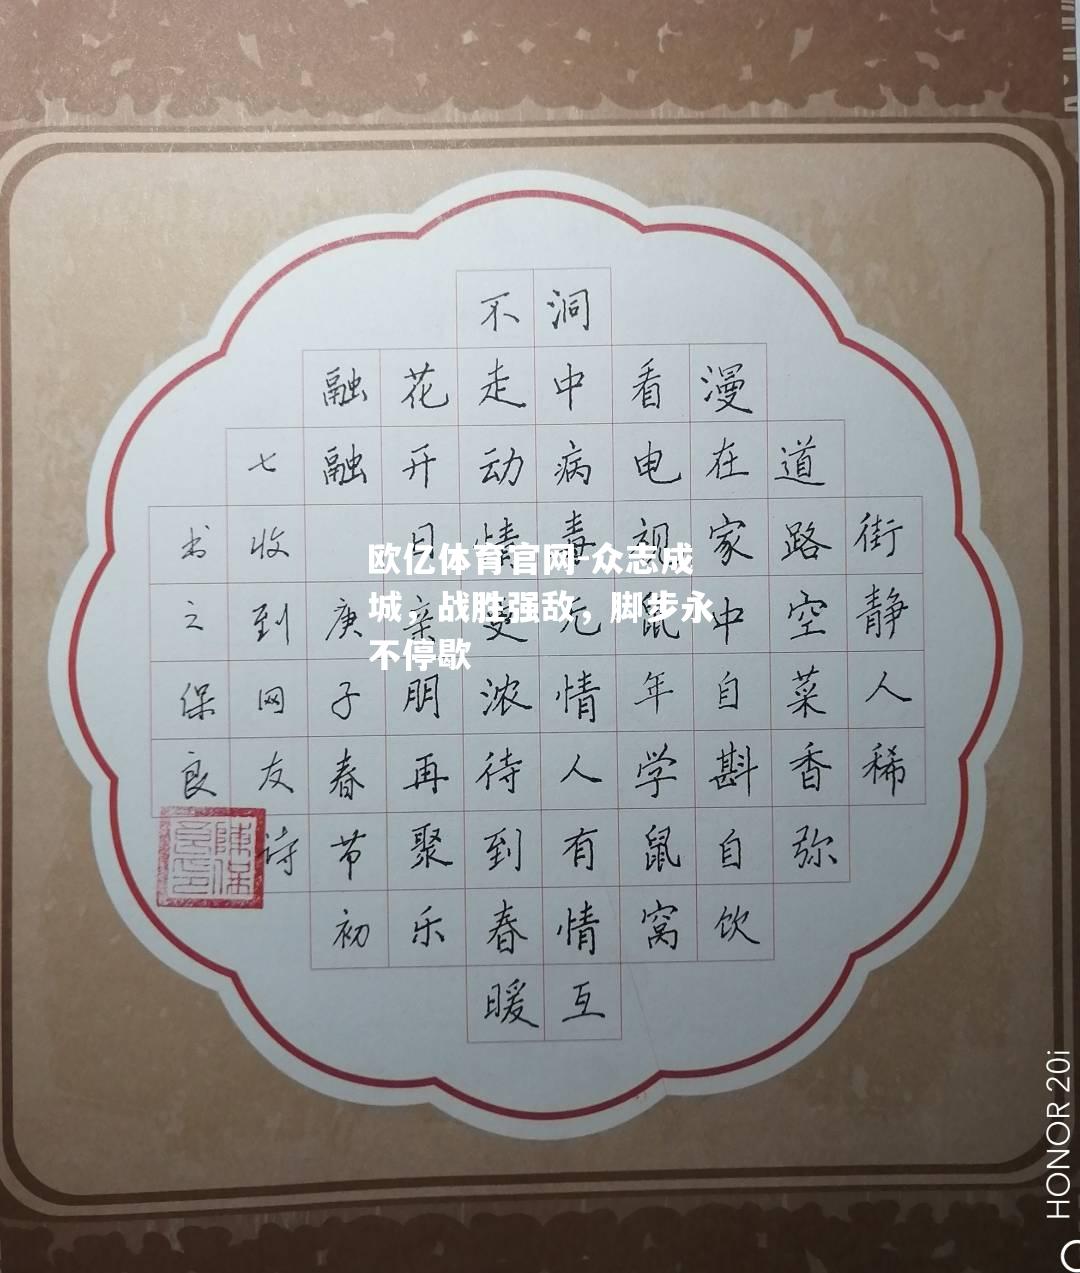 街静人稀
道路空菜香弥
漫在家中自斟自饮
看电视鼠年学鼠窝
洞中病毒无情人有情互
不走动情更浓待到春暖
花开日亲朋再聚乐
融融 庚子春节初
七收到网友诗
书之保良
陈保良印
欧亿体育官网-众志成
城，战胜强敌，脚步永
不停歇
HONOR 20i